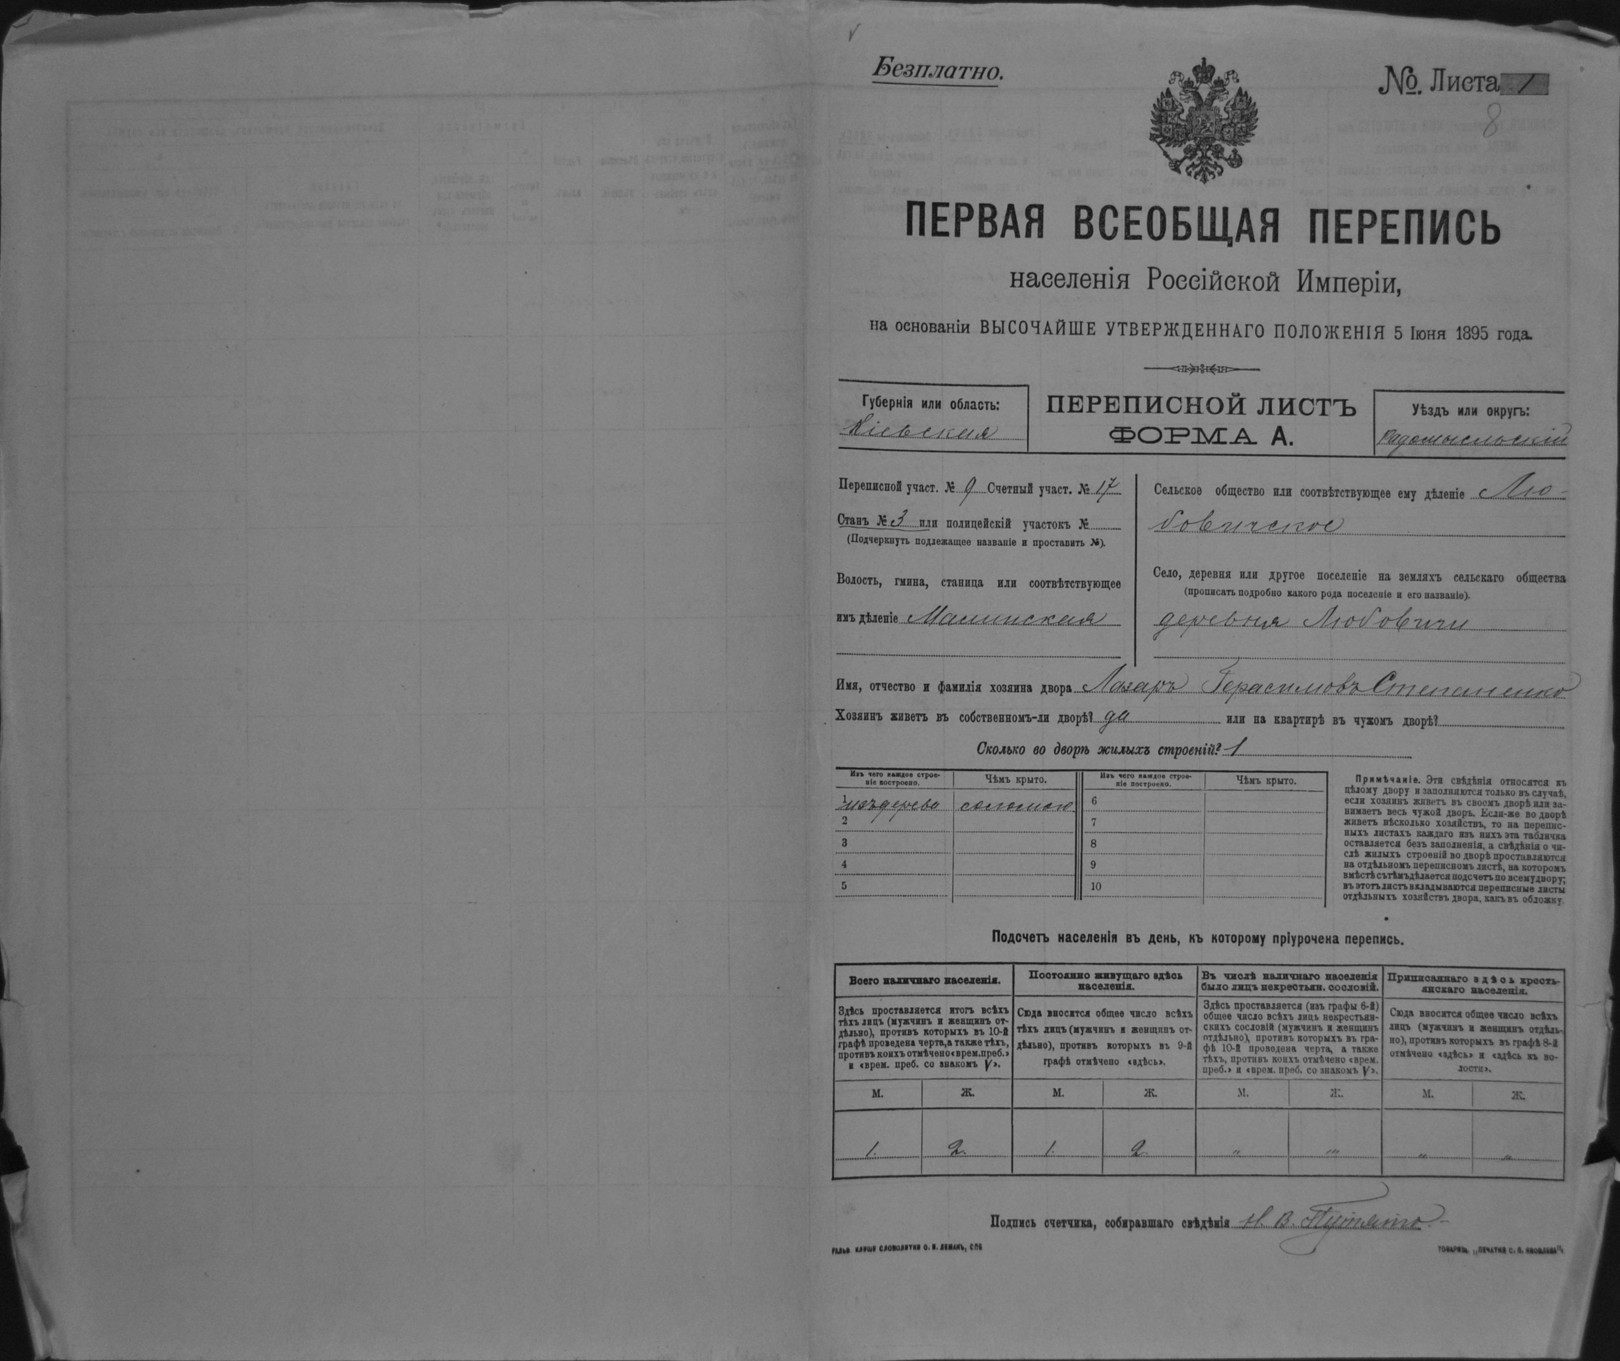 Безплатно.
№. Листа 1
8
ПЕРВАЯ ВСЕОБЩАЯ ПЕРЕПИСЬ
населенія Россійской Имперіи,
на основаніи ВЫСОЧАЙШЕ УТВЕРЖДЕННАГО ПОЛОЖЕНІЯ 5 Іюня 1895 года.
Губернія или область:
Кіевская
ПЕРЕПИСНОЙ ЛИСТЪ
ФОРМА А.
Уѣздъ или округъ:
Радомысльскій
Переписной участ. № 9 Счетный участ. № 17
Станъ № 3 или полицейскій участокъ №
(Подчеркнуть подлежащее названіе и проставить №).
Волость, гмина, станица или соотвѣтствующее
имъ дѣленіе Малинская
Сельское общество или соотвѣтствующее ему дѣленіе Лю-
бовичское
Село, деревня или другое поселеніе на земляхъ сельскаго общества
(прописать подробно какого рода поселеніе и его названіе).
деревня Любовичи
Имя, отчество и фамилія хозяина двора Лазаръ Герасимовъ Степаненко
Хозяинъ живетъ въ собственномъ-ли дворѣ? да или на квартирѣ въ чужомъ дворѣ?
Сколько во дворѣ жилыхъ строеній? 1
Изъ чего каждое строе-
ніе построено.
Чѣмъ крыто.
Изъ чего каждое строе-
ніе построено.
Чѣмъ крыто.
1 изъ дерева соломою
2
3
4
5
6
7
8
9
10
Примѣчаніе. Эти свѣдѣнія относятся къ
цѣлому двору и заполняются только въ случаѣ,
если хозяинъ живетъ въ своемъ дворѣ или за-
нимаетъ весь чужой дворъ. Если-же во дворѣ
живетъ нѣсколько хозяйствъ, то на перепис-
ныхъ листахъ каждаго изъ нихъ эта табличка
оставляется безъ заполненія, а свѣдѣнія о чи-
слѣ жилыхъ строеній во дворѣ проставляются
на отдѣльномъ переписномъ листѣ, на которомъ
вмѣстѣ съ тѣмъ дѣлается подсчетъ по всему двору;
въ этотъ листъ вкладываются переписные листы
отдѣльныхъ хозяйствъ двора, какъ въ обложку.
Подсчетъ населенія въ день, къ которому пріурочена перепись.
Всего наличнаго населенія.
Здѣсь проставляется итогъ всѣхъ
тѣхъ лицъ (мужчинъ и женщинъ от-
дѣльно), противъ которыхъ въ 10-й
графѣ проведена черта, а также тѣхъ,
противъ коихъ отмѣчено «врем. преб.»
и «врем. преб. со знакомъ V».
Постоянно живущаго здѣсь
населенія.
Сюда вносится общее число всѣхъ
тѣхъ лицъ (мужчинъ и женщинъ от-
дѣльно), противъ которыхъ въ 9-й
графѣ отмѣчено «здѣсь».
Въ числѣ наличнаго населенія
было лицъ некрестьян. сословій.
Здѣсь проставляется (изъ графы 6-й)
общее число всѣхъ лицъ некрестьян-
скихъ сословій (мужчинъ и женщинъ
отдѣльно), противъ которыхъ въ гра-
фѣ 10-й проведена черта, а также
тѣхъ, противъ коихъ отмѣчено «врем.
преб.» и «врем. преб. со знакомъ V».
Приписаннаго здѣсь кресть-
янскаго населенія.
Сюда вносится общее число всѣхъ
лицъ (мужчинъ и женщинъ отдѣль-
но), противъ которыхъ въ графѣ 8-й
отмѣчено «здѣсь» и «здѣсь къ во-
лости».
М. Ж. М. Ж. М. Ж. М. Ж.
1. 2. 1. 2. " " " "
Подпись счетчика, собиравшаго свѣдѣнія Н. В. Путято
ГАЛЬВ. КЛИШЕ СЛОВОЛИТНИ О. И. ЛЕМАНЪ, СПБ
ТОВАРИЩ. „ПЕЧАТНЯ С. П. ЯКОВЛЕВА“